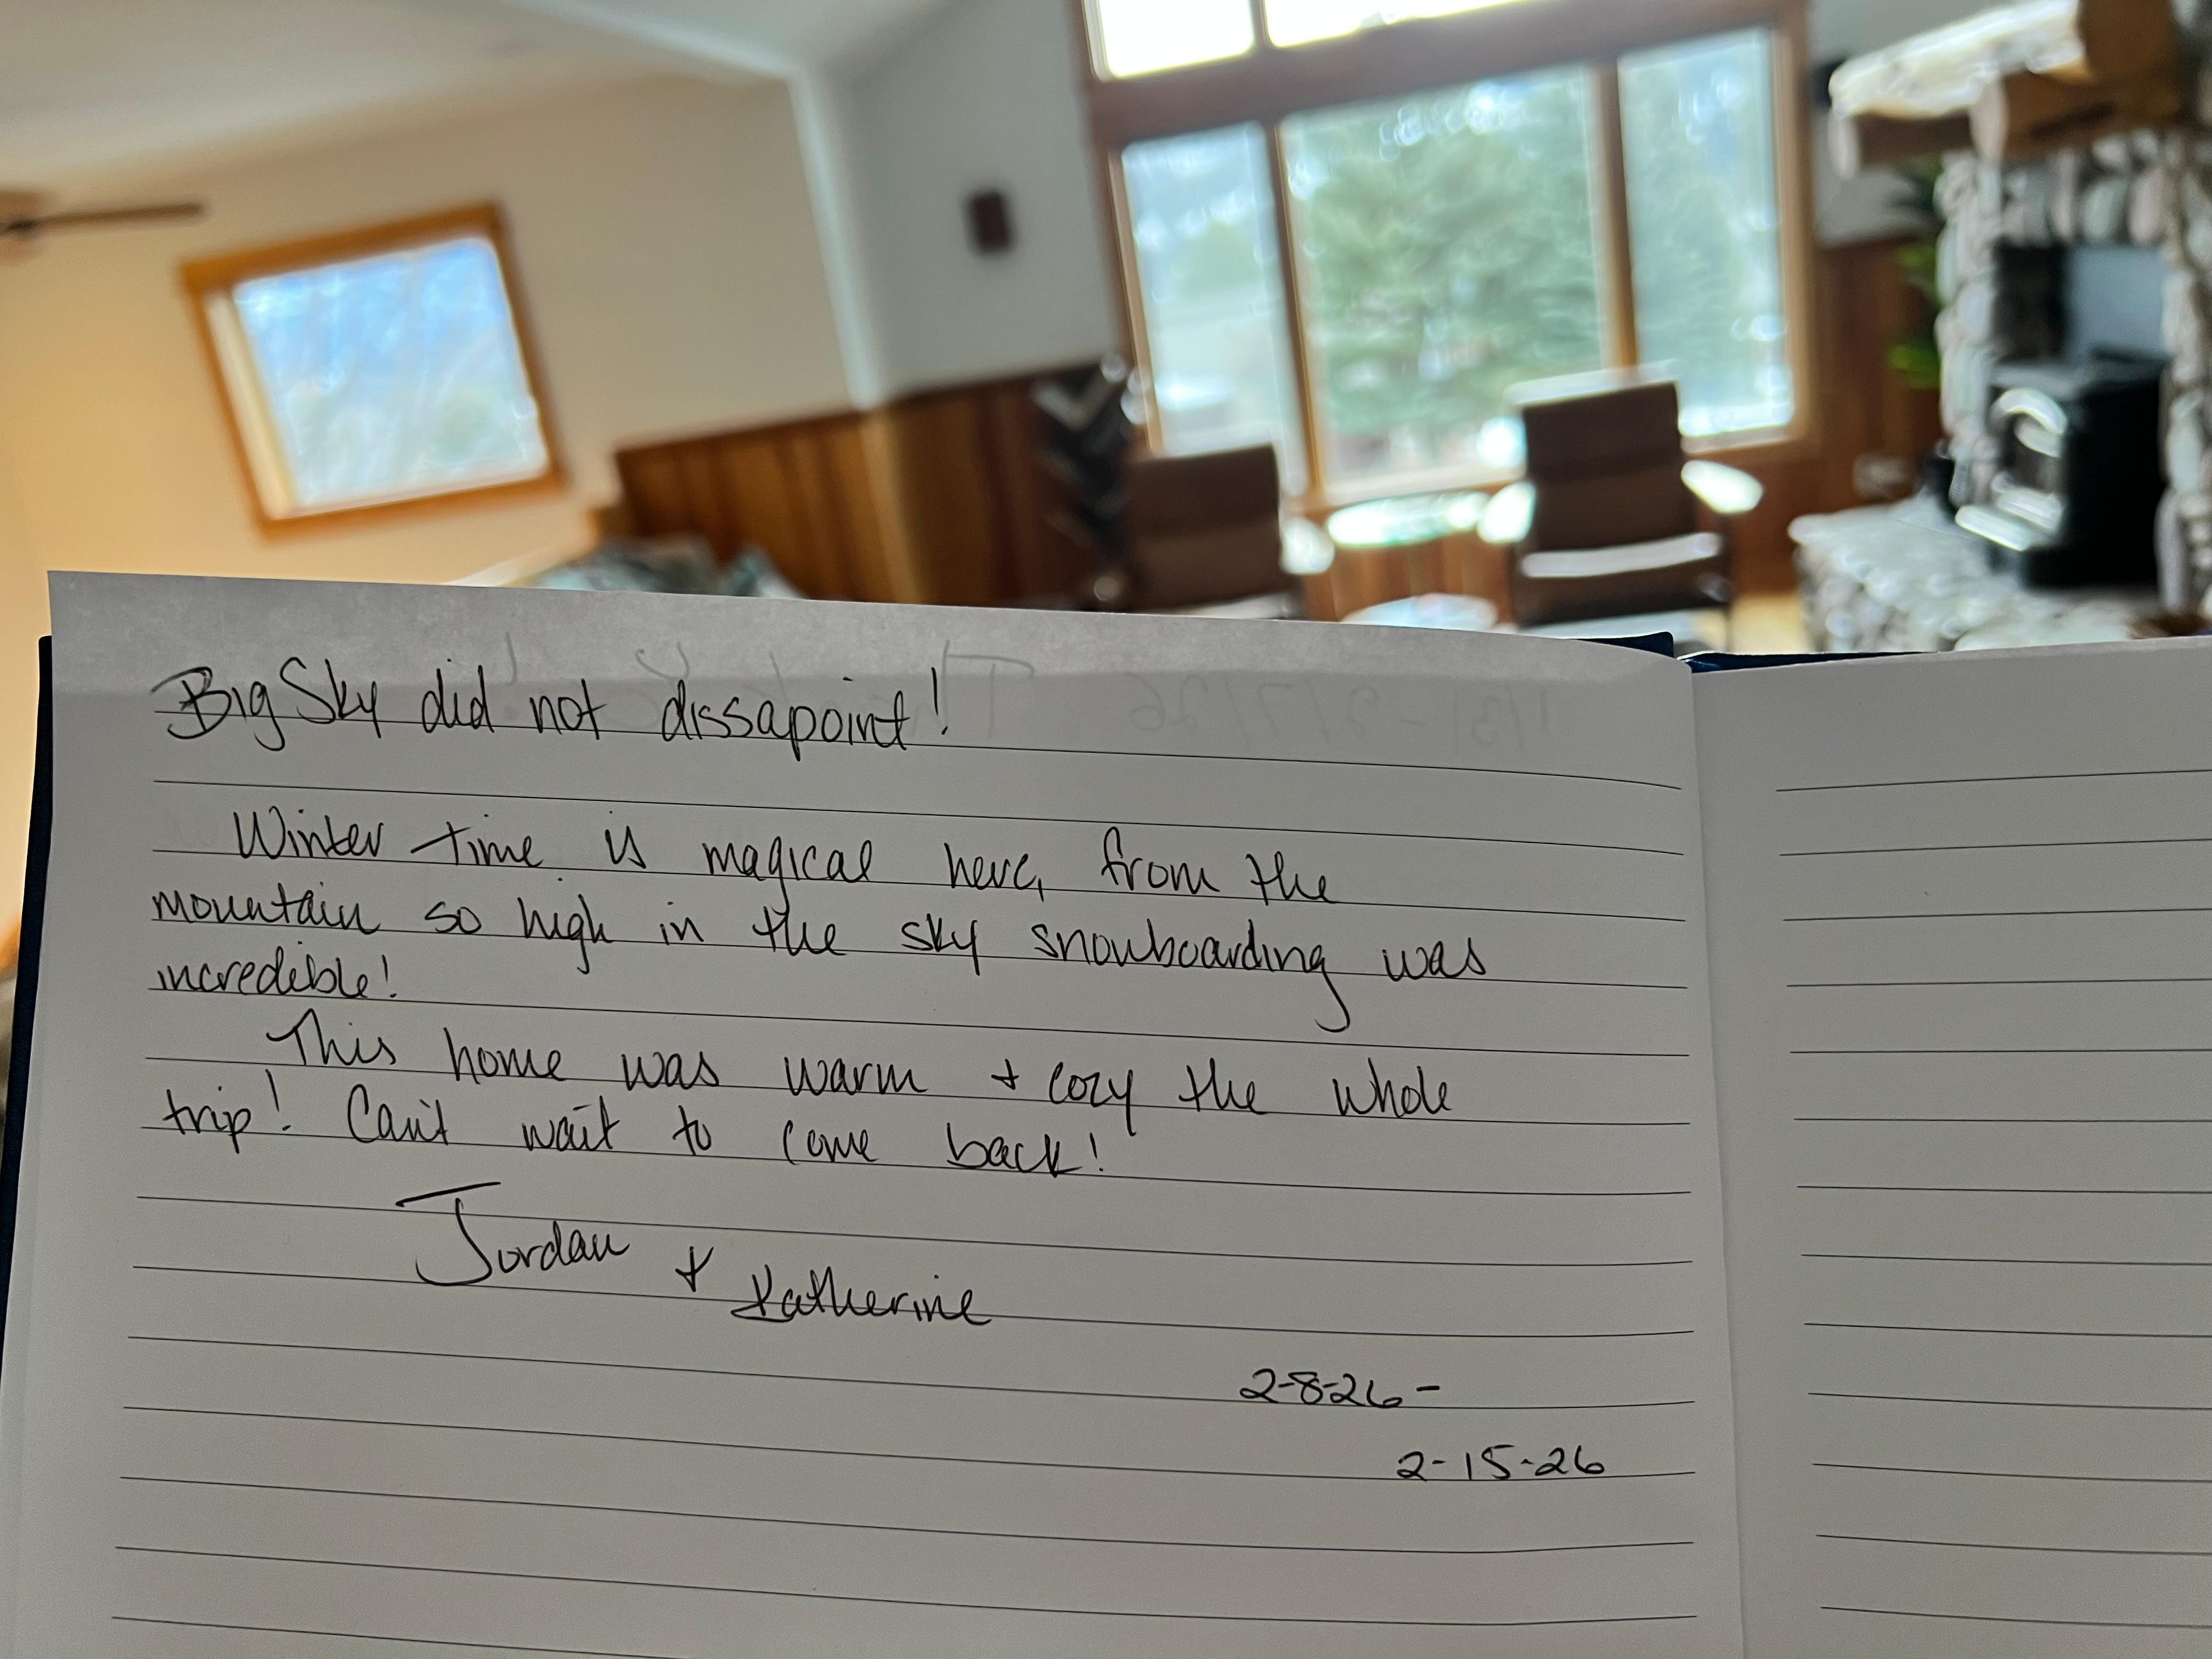 Big Sky did not dissapoint!
Winter time is magical here, from the
mountain so high in the sky snowboarding was
incredible!
This home was warm + cozy the whole
trip! Can't wait to come back!
Jordan + Katherine
2-8-26 -
2-15-26
1/31-2/7/26